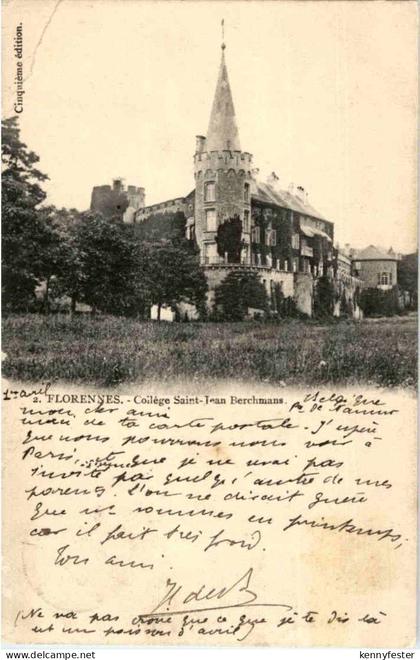 Cinquième édition.
2. FLORENNES. - Collège Saint-Jean Berchmans.
1er avril
Belgique
Pce de Namur
mon cher ami
de ta carte postale. J'espère
que nous pourrons nous voir à
Paris que je ne vais pas
invité pas quelqu'autre de mes
parents. L'on ne dirait guère
que nous sommes en printemps,
car il fait très froid.
Ton ami
(Ne va pas croire que ce que je te dis là
est un poisson d'avril)
kennyfester